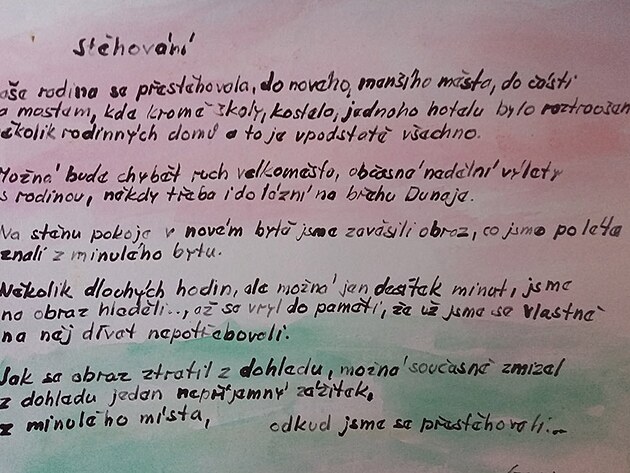 Stěhování
aše rodina se přestěhovala, do nového, menšího města, do části
mostem, kde kromě školy, kostela, jednoho hotelu bylo roztroušen
ěkolik rodinných domů a to je vpodstatě všechno.
ožná bude chybět ruch velkoměsta, občasné nedělní výlety
s rodinou, někdy třeba i do lázní na břehu Dunaje.
Na stěnu pokoje v novém bytě jsme zavěsili obraz, co jsme po léta
znali z minulého bytu.
Několik dlouhých hodin, ale možná jen desítek minut, jsme
na obraz hleděli.., až se vryl do paměti, že už jsme se vlastně
na něj dívat nepotřebovali.
Jak se obraz ztratil z dohledu, možná současně zmizel
z dohledu jeden nepříjemný zážitek,
z minulého místa, odkud jsme se přestěhovali...